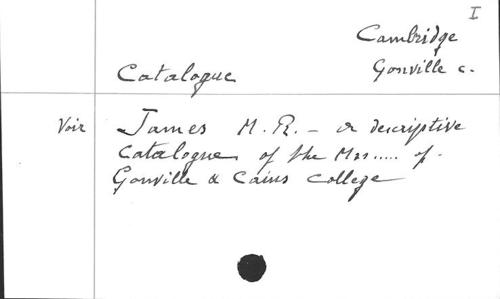 I
Cambridge
Catalogue Gonville C.
Voir James M. R. – a descriptive
Catalogue of the Mss ..... of
Gonville & Caius College